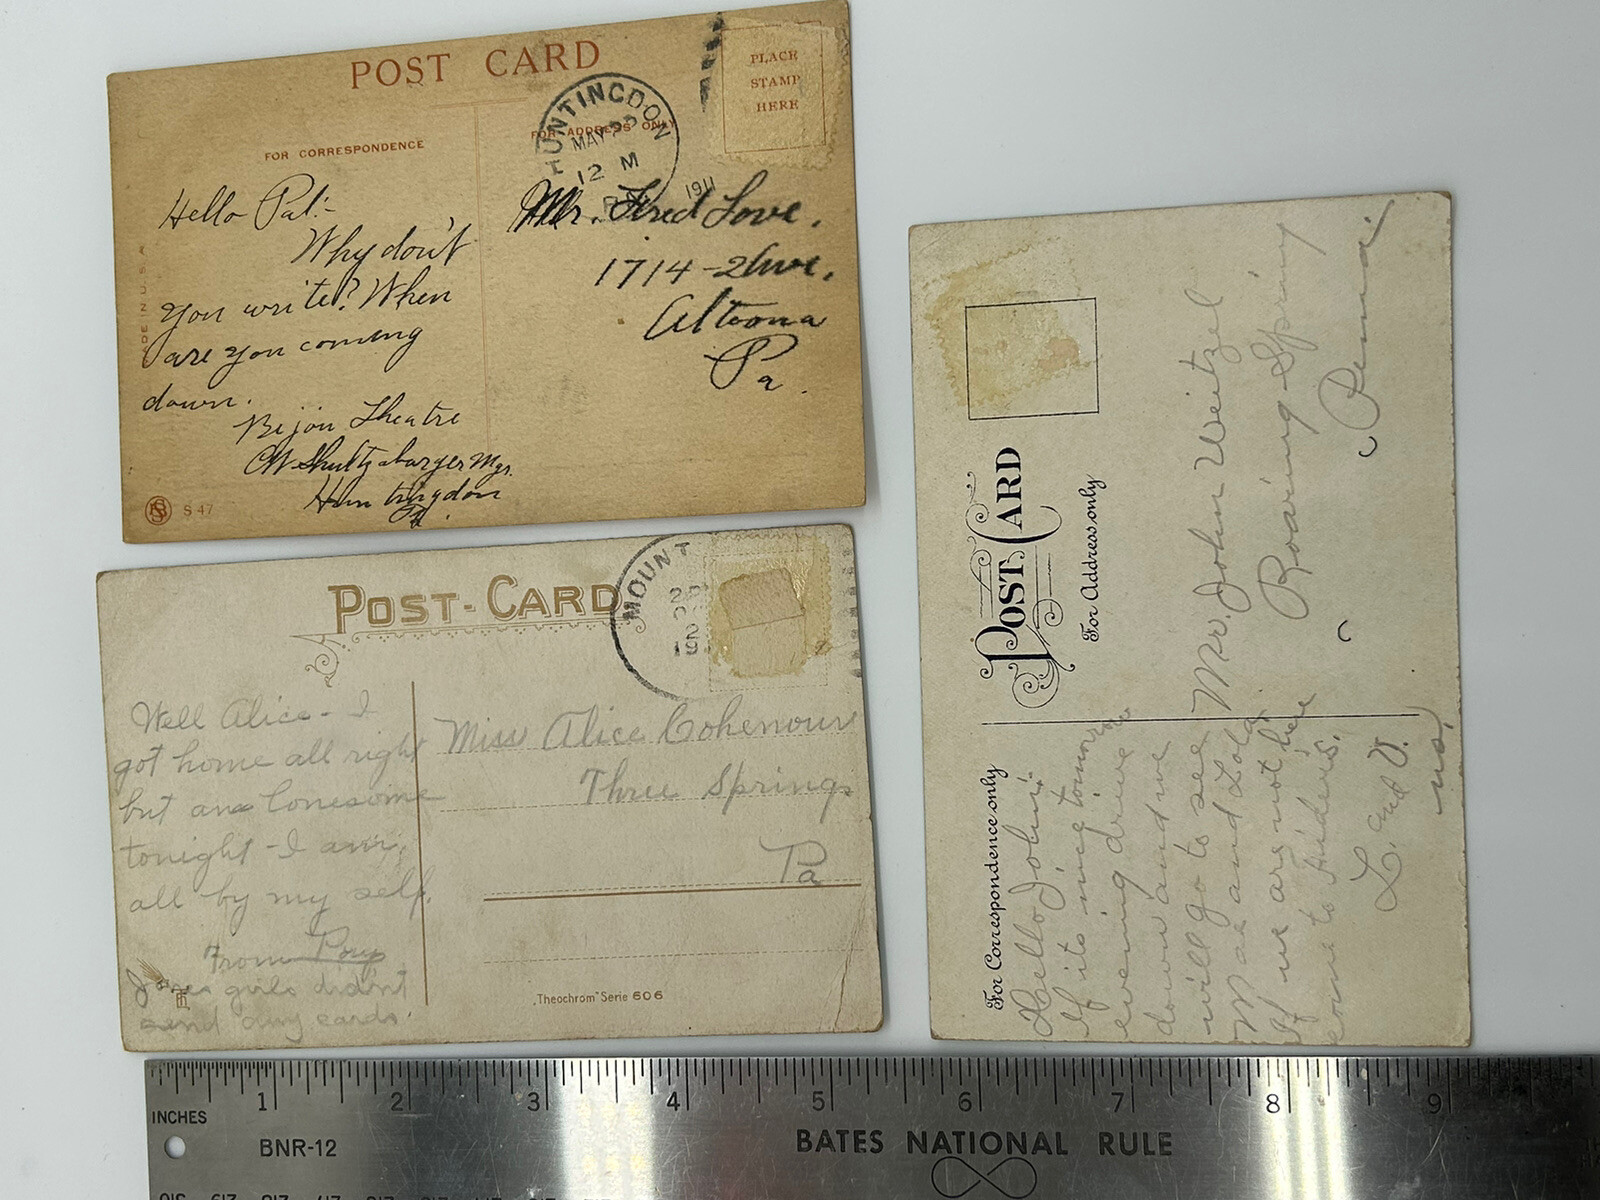 POST CARD
PLACE
STAMP
HERE
HUNTINGDON
MAY
12 M
1911
FOR CORRESPONDENCE
FOR ADDRESS ONLY
Hello Pal:-
Why don't
you write? When
are you coming
down.
Bijou Theatre
Mgr.
Huntingdon
Pa.
Mr. Fred Love.
1714-2 Ave.
Altoona
Pa.
MADE IN U.S.A.
S 47
POST-CARD
MOUNT
Well Alice - I
got home all right
but am lonesome
tonight - I am
all by my self.
From
girls didn't
send any cards.
Miss Alice Cohenour
Three Springs
Pa
"Theochrom" Serie 606
POST CARD
For Address only
Mr. John Weitzel
Roaring Spring
Penna.
For Correspondence only
Hello John:
If its nice tomorrow
evening drive
down and we
will go to see
Mae and Lola.
If we are not here
come to
L. and V.
INCHES
1 2 3 4 5 6 7 8 9
BNR-12
BATES NATIONAL RULE